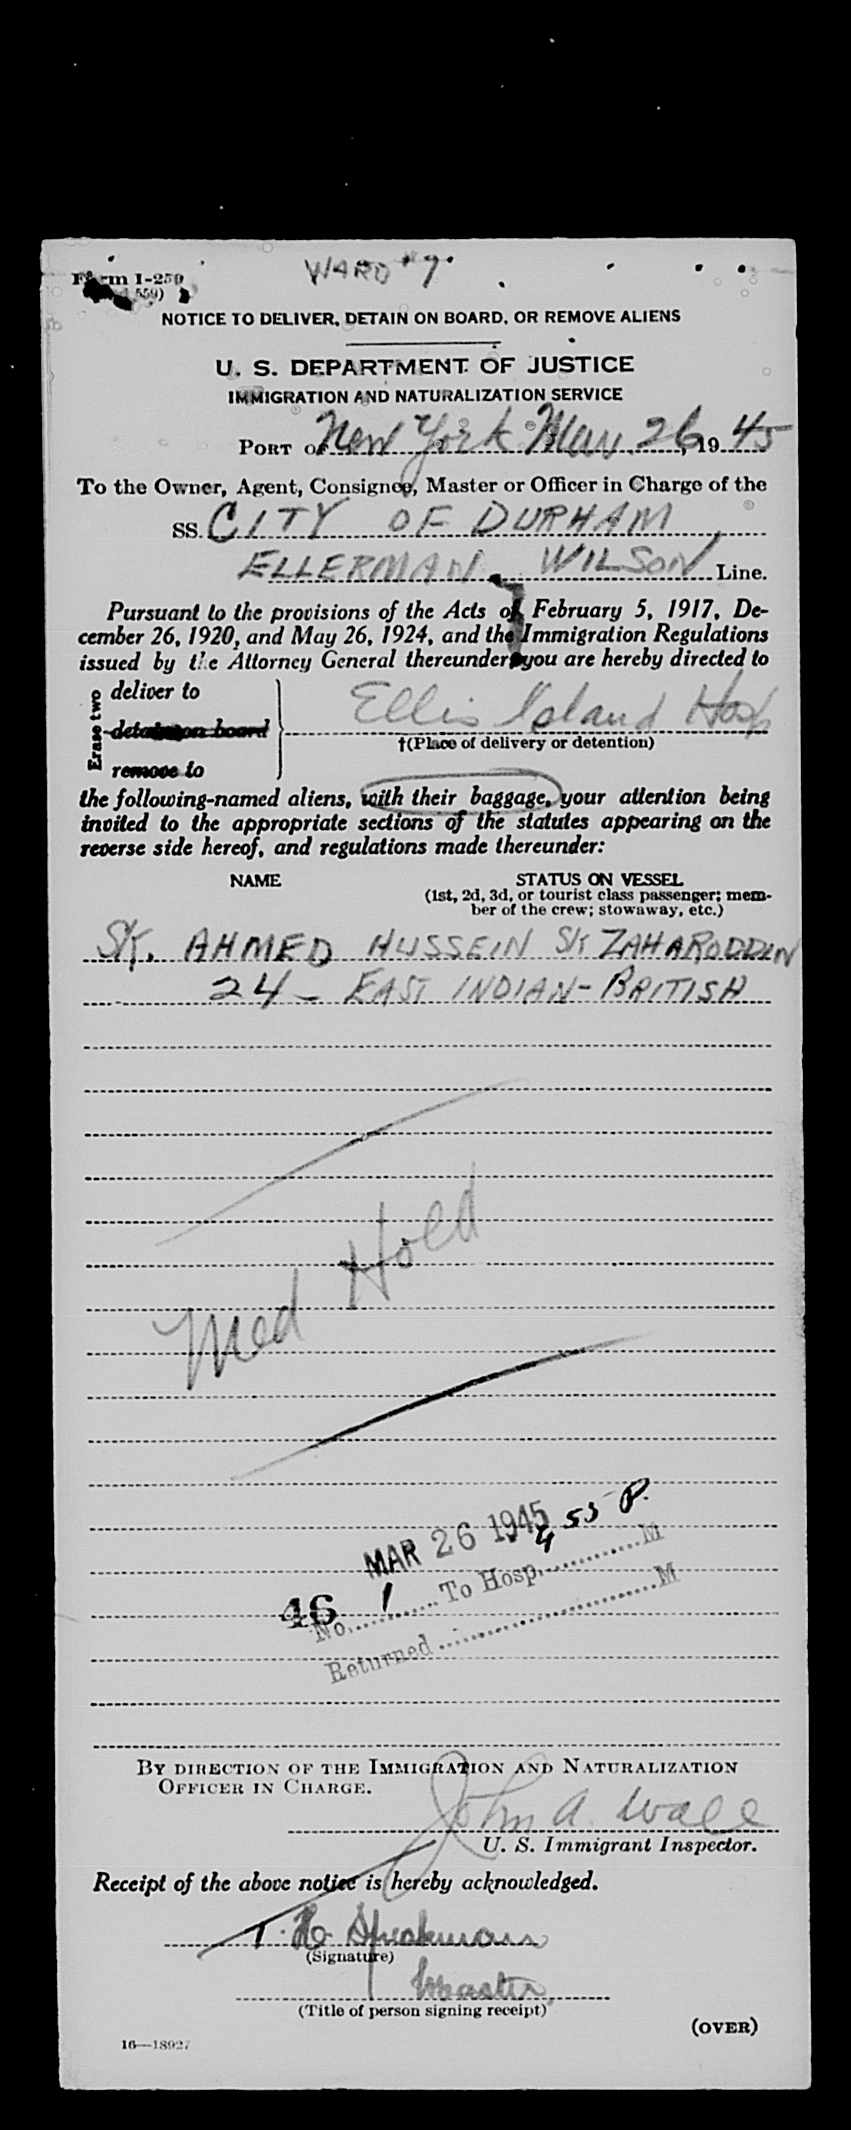 WARD #7
Form I-259
559)
NOTICE TO DELIVER, DETAIN ON BOARD, OR REMOVE ALIENS
U. S. DEPARTMENT OF JUSTICE
IMMIGRATION AND NATURALIZATION SERVICE
PORT of New York Mar. 26, 1945
To the Owner, Agent, Consignee, Master or Officer in Charge of the
SS. CITY OF DURHAM
ELLERMAN WILSON Line.
Pursuant to the provisions of the Acts of February 5, 1917, De-
cember 26, 1920, and May 26, 1924, and the Immigration Regulations
issued by the Attorney General thereunder, you are hereby directed to
Erase two
deliver to
detain on board
remove to
Ellis Island Hosp
†(Place of delivery or detention)
the following-named aliens, with their baggage, your attention being
invited to the appropriate sections of the statutes appearing on the
reverse side hereof, and regulations made thereunder:
NAME STATUS ON VESSEL
(1st, 2d, 3d, or tourist class passenger; mem-
ber of the crew; stowaway, etc.)
SK. AHMED HUSSEIN SK ZAHARODDIN
24 - EAST INDIAN - BRITISH
Med Hold
MAR 26 1945 4 55 P.
46 No. 1 To Hosp. M
Returned M
BY DIRECTION OF THE IMMIGRATION AND NATURALIZATION
OFFICER IN CHARGE.
John A. Wall
U. S. Immigrant Inspector.
Receipt of the above notice is hereby acknowledged.
Speakman
(Signature)
Master
(Title of person signing receipt)
(OVER)
16—18927